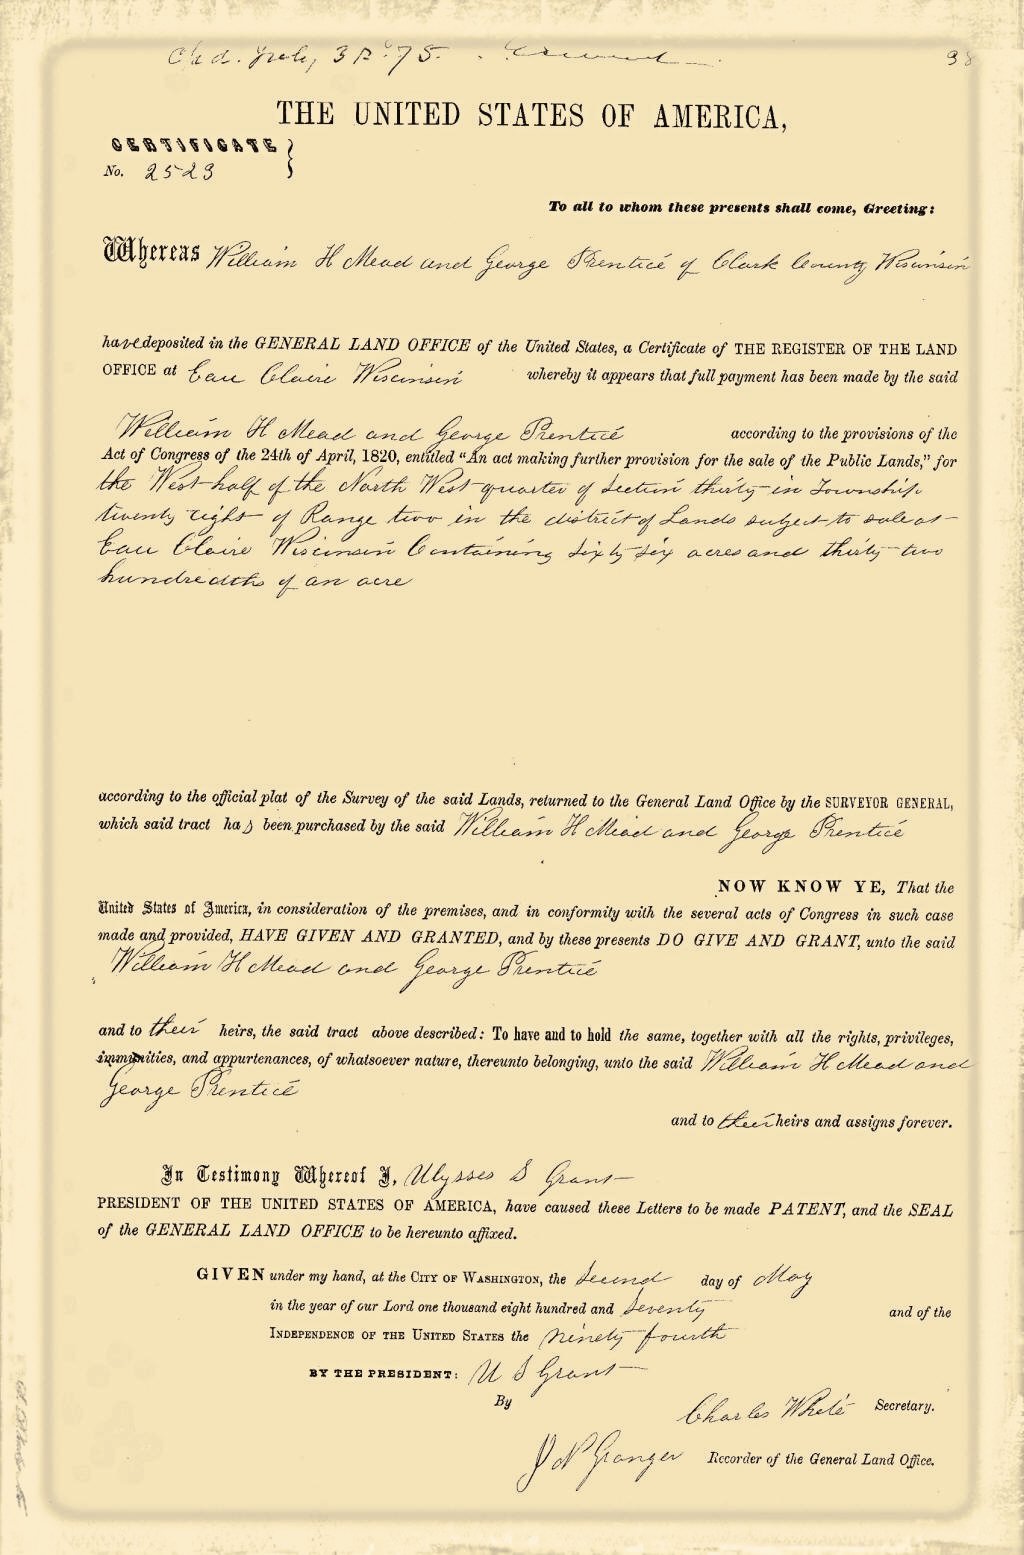 July 31st 75.
38
THE UNITED STATES OF AMERICA,
CERTIFICATE
No. 2523
To all to whom these presents shall come, Greeting:
Whereas William H Mead and George Prentice of Clark County Wisconsin
have deposited in the GENERAL LAND OFFICE of the United States, a Certificate of THE REGISTER OF THE LAND
OFFICE at Eau Claire Wisconsin whereby it appears that full payment has been made by the said
William H Mead and George Prentice according to the provisions of the
Act of Congress of the 24th of April, 1820, entitled “An act making further provision for the sale of the Public Lands,” for
the West half of the North West quarter of Section thirty in Township
twenty eight of Range two in the district of Lands subject to sale at
Eau Claire Wisconsin Containing Sixty six acres and thirty two
hundredths of an acre
according to the official plat of the Survey of the said Lands, returned to the General Land Office by the SURVEYOR GENERAL,
which said tract has been purchased by the said William H Mead and George Prentice
NOW KNOW YE, That the
United States of America, in consideration of the premises, and in conformity with the several acts of Congress in such case
made and provided, HAVE GIVEN AND GRANTED, and by these presents DO GIVE AND GRANT, unto the said
William H Mead and George Prentice
and to their heirs, the said tract above described: To have and to hold the same, together with all the rights, privileges,
immunities, and appurtenances, of whatsoever nature, thereunto belonging, unto the said William H Mead and
George Prentice
and to their heirs and assigns forever.
In Testimony Whereof I, Ulysses S Grant
PRESIDENT OF THE UNITED STATES OF AMERICA, have caused these Letters to be made PATENT, and the SEAL
of the GENERAL LAND OFFICE to be hereunto affixed.
GIVEN under my hand, at the CITY OF WASHINGTON, the Second day of May
in the year of our Lord one thousand eight hundred and Seventy and of the
INDEPENDENCE OF THE UNITED STATES the Ninety fourth
BY THE PRESIDENT: U S Grant
By
Charles White Secretary.
J N Granger Recorder of the General Land Office.